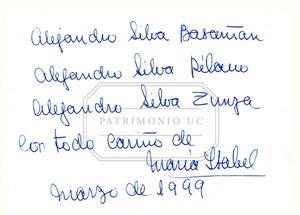 Alejandro Silva Bascuñan
Alejandro Silva Pélano
Alejandro Silva Zunza
PATRIMONIO UC
con todo cariño de
María Isabel
Marzo de 1999